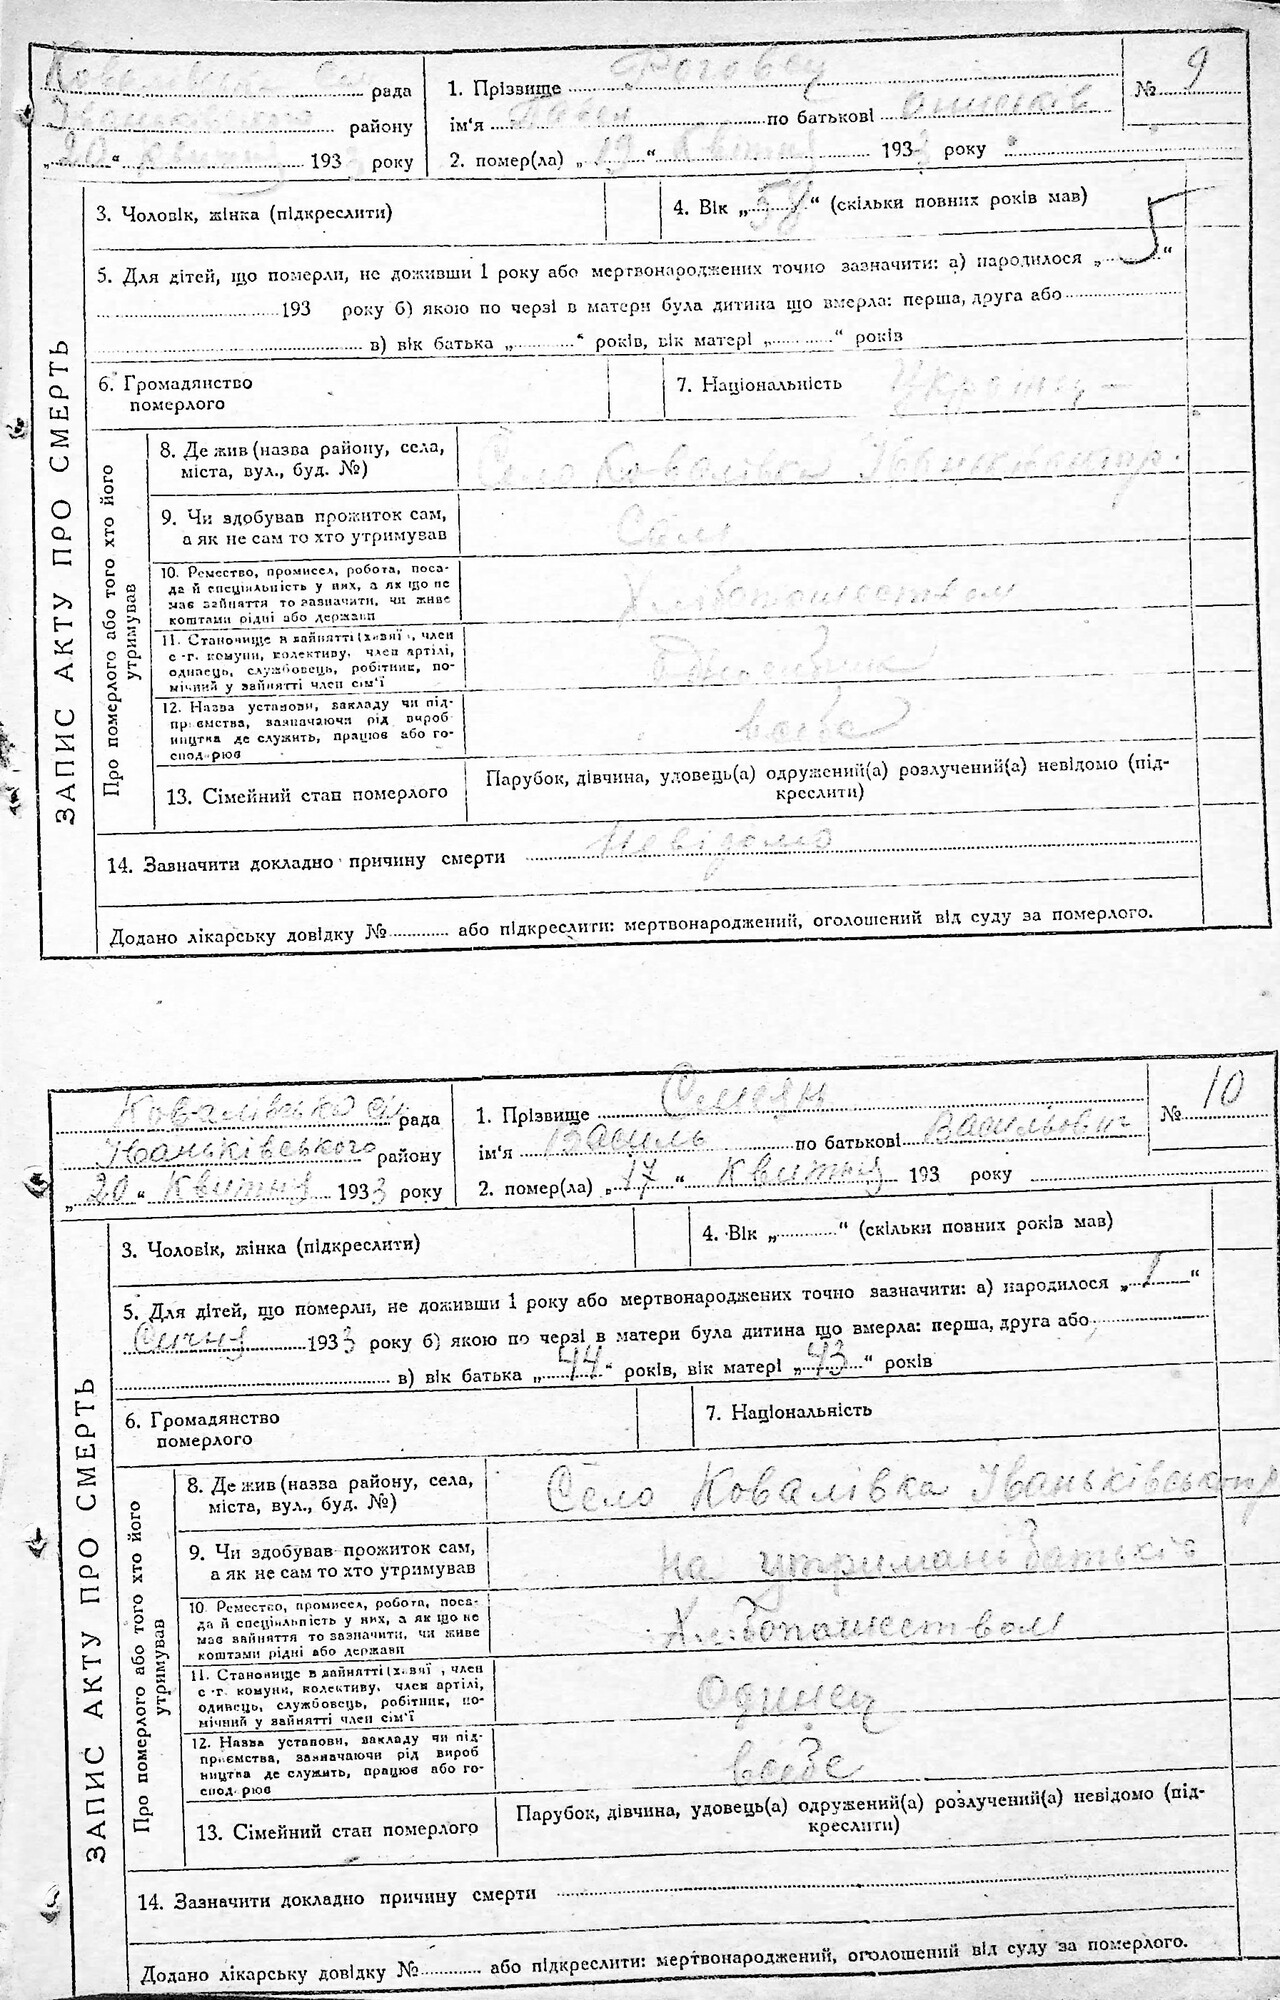 Ковалівська сіл рада
Іваньківського району
„20“ квітня 1933 року
1. Прізвище Роговец № 9
ім'я по батькові
2. помер(ла) „19“ квітня 1933 року
3. Чоловік, жінка (підкреслити)
4. Вік „ “ (скільки повних років мав)
5
5. Для дітей, що померли, не доживши 1 року або мертвонароджених точно зазначити: а) народилося „ “
193 року б) якою по черзі в матери була дитина що вмерла: перша, друга або
в) вік батька „ “ років, вік матері „ “ років
6. Громадянство
померлого
7. Національність Украінец
ЗАПИС АКТУ ПРО СМЕРТЬ
Про померлого або того хто його
утримував
8. Де жив (назва району, села,
міста, вул., буд. №)
Село Ковалівка
9. Чи здобував прожиток сам,
а як не сам то хто утримував
Сам
10. Ремество, промисел, робота, поса-
да й спеціяльність у них, а як що не
має зайняття то зазначити, чи живе
коштами рідні або держави
Хлібопашеством
11. Становище в зайнятті (хазяї , член
с.-г. комуни, колективу, член артілі,
одинець, службовець, робітник, по-
мічний у зайнятті член сім'ї
12. Назва установи, закладу чи під-
приємства, зазначаючи рід вироб
ництва де служить, працює або го-
сподарює
всебе
13. Сімейний стан померлого
Парубок, дівчина, удовець(а) одружений(а) розлучений(а) невідомо (під-
креслити)
14. Зазначити докладно причину смерти Невідомо
Додано лікарську довідку № або підкреслити: мертвонароджений, оголошений від суду за померлого.
Ковалівсько сіл рада
Іваньківського району
„20“ квитня 1933 року
1. Прізвище Смоян № 10
ім'я Василь по батькові Васильович
2. помер(ла) „17“ квитня 193 року
3. Чоловік, жінка (підкреслити)
4. Вік „ “ (скільки повних років мав)
5. Для дітей, що померли, не доживши 1 року або мертвонароджених точно зазначити: а) народилося „1“
Сичня 1933 року б) якою по черзі в матери була дитина що вмерла: перша, друга або
в) вік батька „44“ років, вік матері „43“ років
6. Громадянство
померлого
7. Національність
ЗАПИС АКТУ ПРО СМЕРТЬ
Про померлого або того хто його
утримував
8. Де жив (назва району, села,
міста, вул., буд. №)
Село Ковалівка Іваньківськ р
9. Чи здобував прожиток сам,
а як не сам то хто утримував
на утримані батьків
10. Ремество, промисел, робота, поса-
да й спеціяльність у них, а як що не
має зайняття то зазначити, чи живе
коштами рідні або держави
Хлібопашеством
11. Становище в зайнятті (хазяї , член
с.-г. комуни, колективу, член артілі,
одинець, службовець, робітник, по-
мічний у зайнятті член сім'ї
Одинец
12. Назва установи, закладу чи під-
приємства, зазначаючи рід вироб
ництва де служить, працює або го-
сподарює
всебе
13. Сімейний стан померлого
Парубок, дівчина, удовець(а) одружений(а) розлучений(а) невідомо (під-
креслити)
14. Зазначити докладно причину смерти
Додано лікарську довідку № або підкреслити: мертвонароджений, оголошений від суду за померлого.